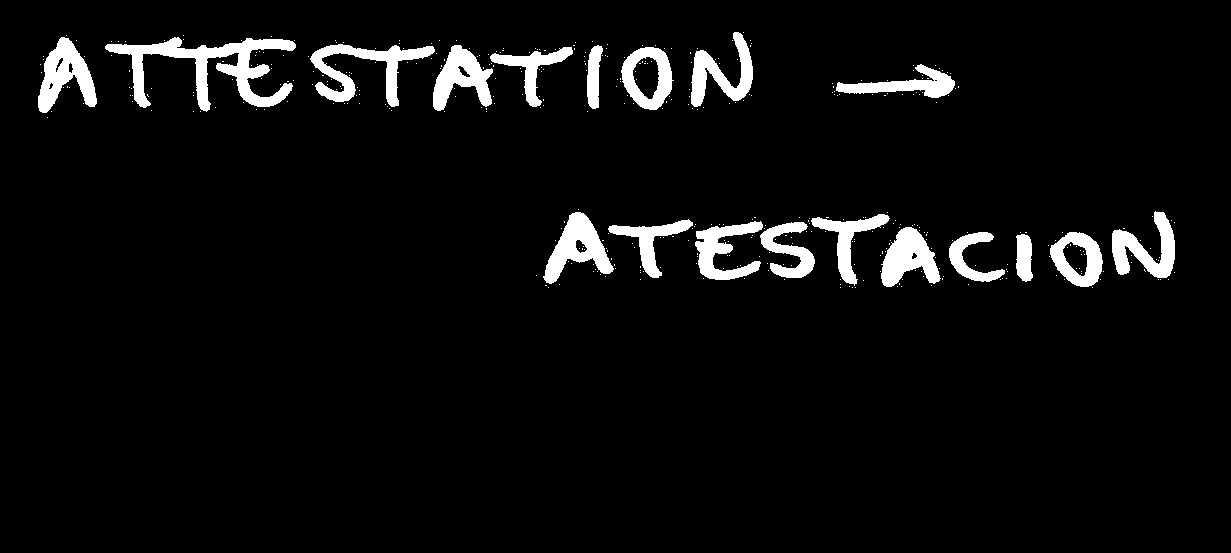 ATTESTATION →
ATESTACION